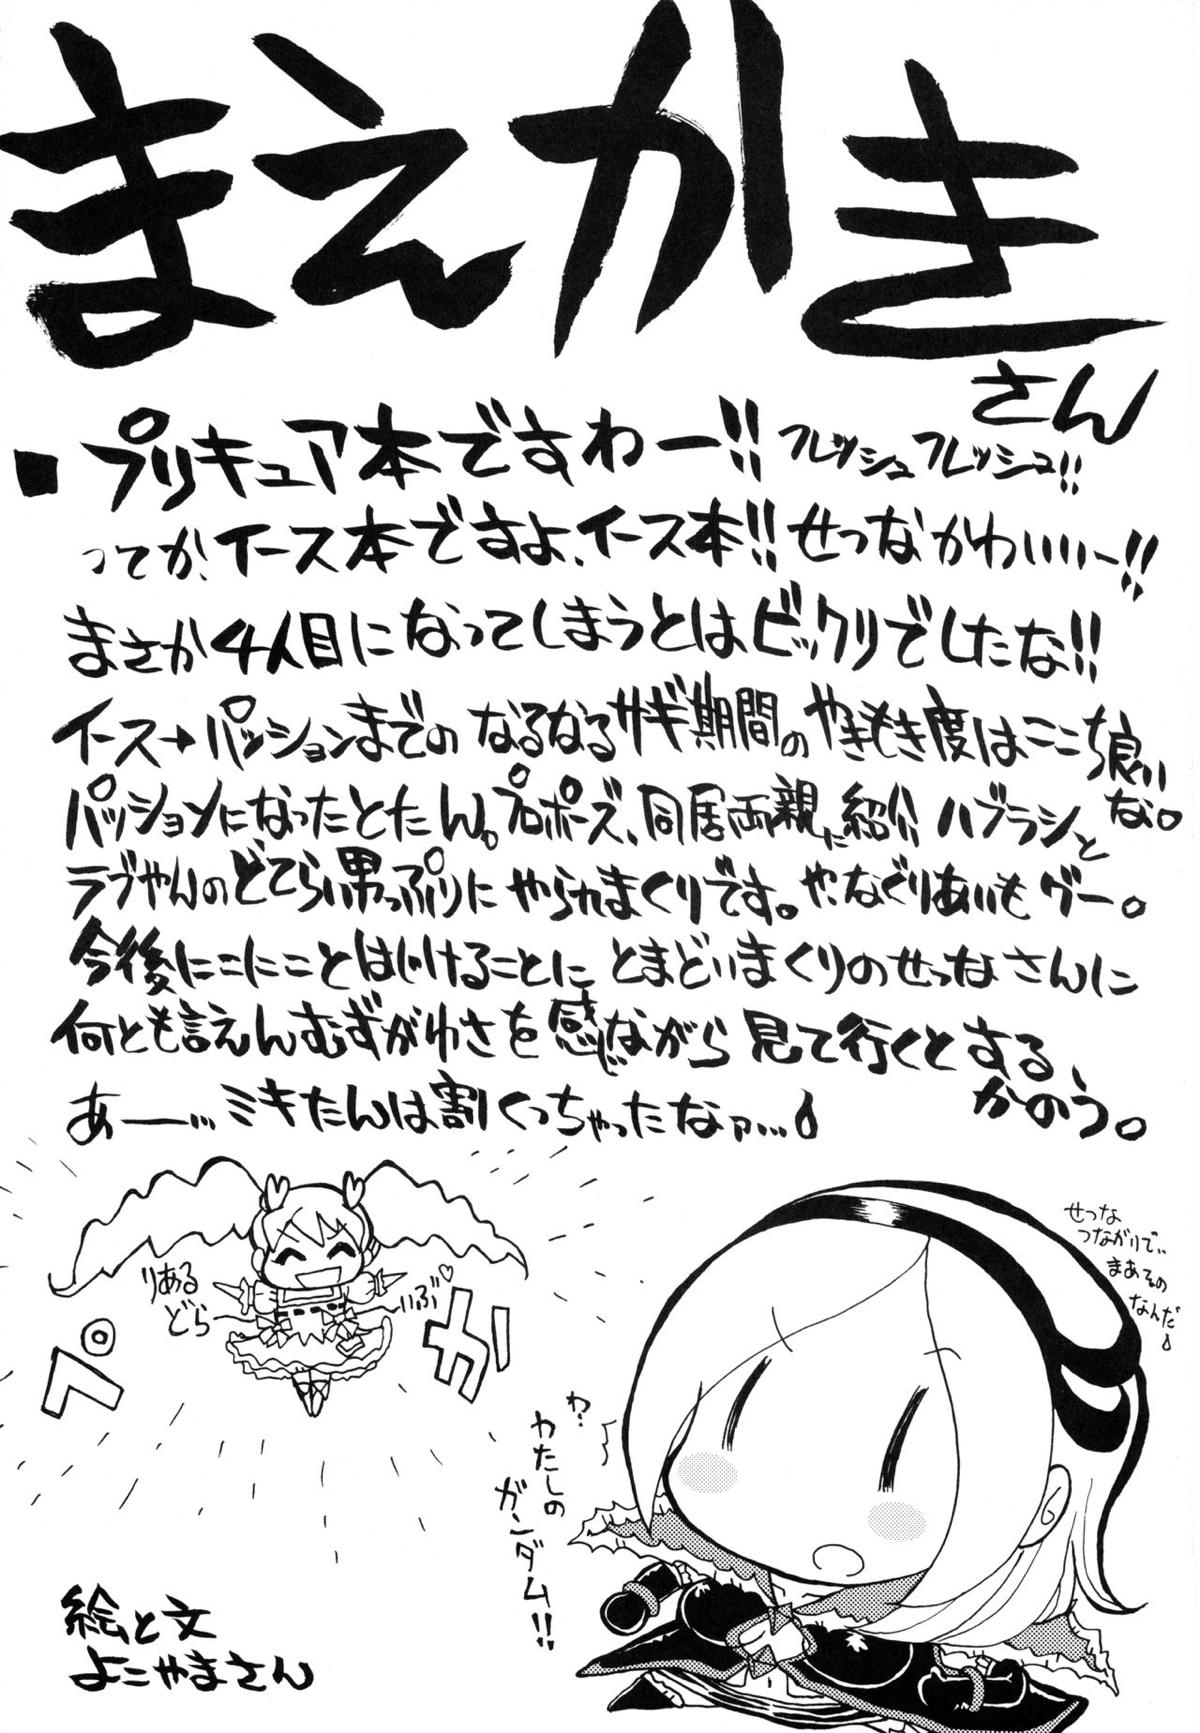 まえかき
さん
■プリキュア本ですわー!! フレッシュ フレッシュ!!
ってか、イース本ですよ、イース本!! せつなかわいいー!!
まさか4人目になってしまうとはビックリでしたな!!
イース→パッションまでの なるなるサギ期間の やきもき度はここち良いな。
パッションになったとたん。プロポーズ、同居両親に紹介 ハブラシと
ラブやんのどてらい男っぷりに やられまくりです。や、なぐりあいもグー。
今後にこにことはじけることに とまどいまくりのせつなさんに
何とも言えんむずがゆさを感じながら 見て行くとする、
かのう。
あー…ミキたんは割くっちゃったなァ…
りある
どら
いぶ♡
ペ
カ
せつな
つながりで…
まああるの
なんだ
わ、
わたしの
ガンダム!!
絵と文
よこやまさん